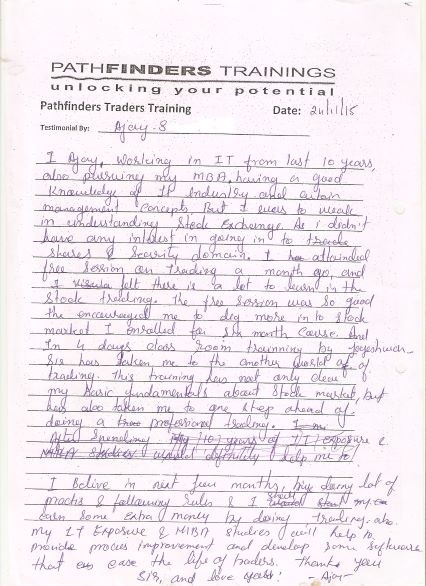 PATHFINDERS TRAININGS
unlocking your potential
Pathfinders Traders Training Date: 24/1/15
Testimonial By: Ajay-S
I Ajay, working in IT from last 10 years,
also pursuing my MBA, having a good
Knowledge of IT Industry and certain
management concepts. But I was to weak
in understanding Stock Exchange. As I didn't
have any interest in going in to trade
shares & Security domain. I attained
free session on trading a month go, and
I felt there is a lot to learn in the
Stock trading. The free session was so good
the encouraged me to dig more in to Stock
market I enrolled for six month Course. And
In 4 days class room trainning by Yogeshwar
Sir has taken me to the another world of
trading. This training has not only clear
my basic fundamentals about stock market, but
has also taken me to one step ahead of
doing a professional trading.
After Spending 10 years of IT exposure &
MBA Studies would definitely help me to
I belive in next few months, doing lot of
practis & following rules & I start my
earn some Extra money by doing trading. also
my IT Exposure & MBA studies will help to
provide proces improvement and develop some software
that can ease the life of traders. Thank you
Sir, and love you! - Ajay